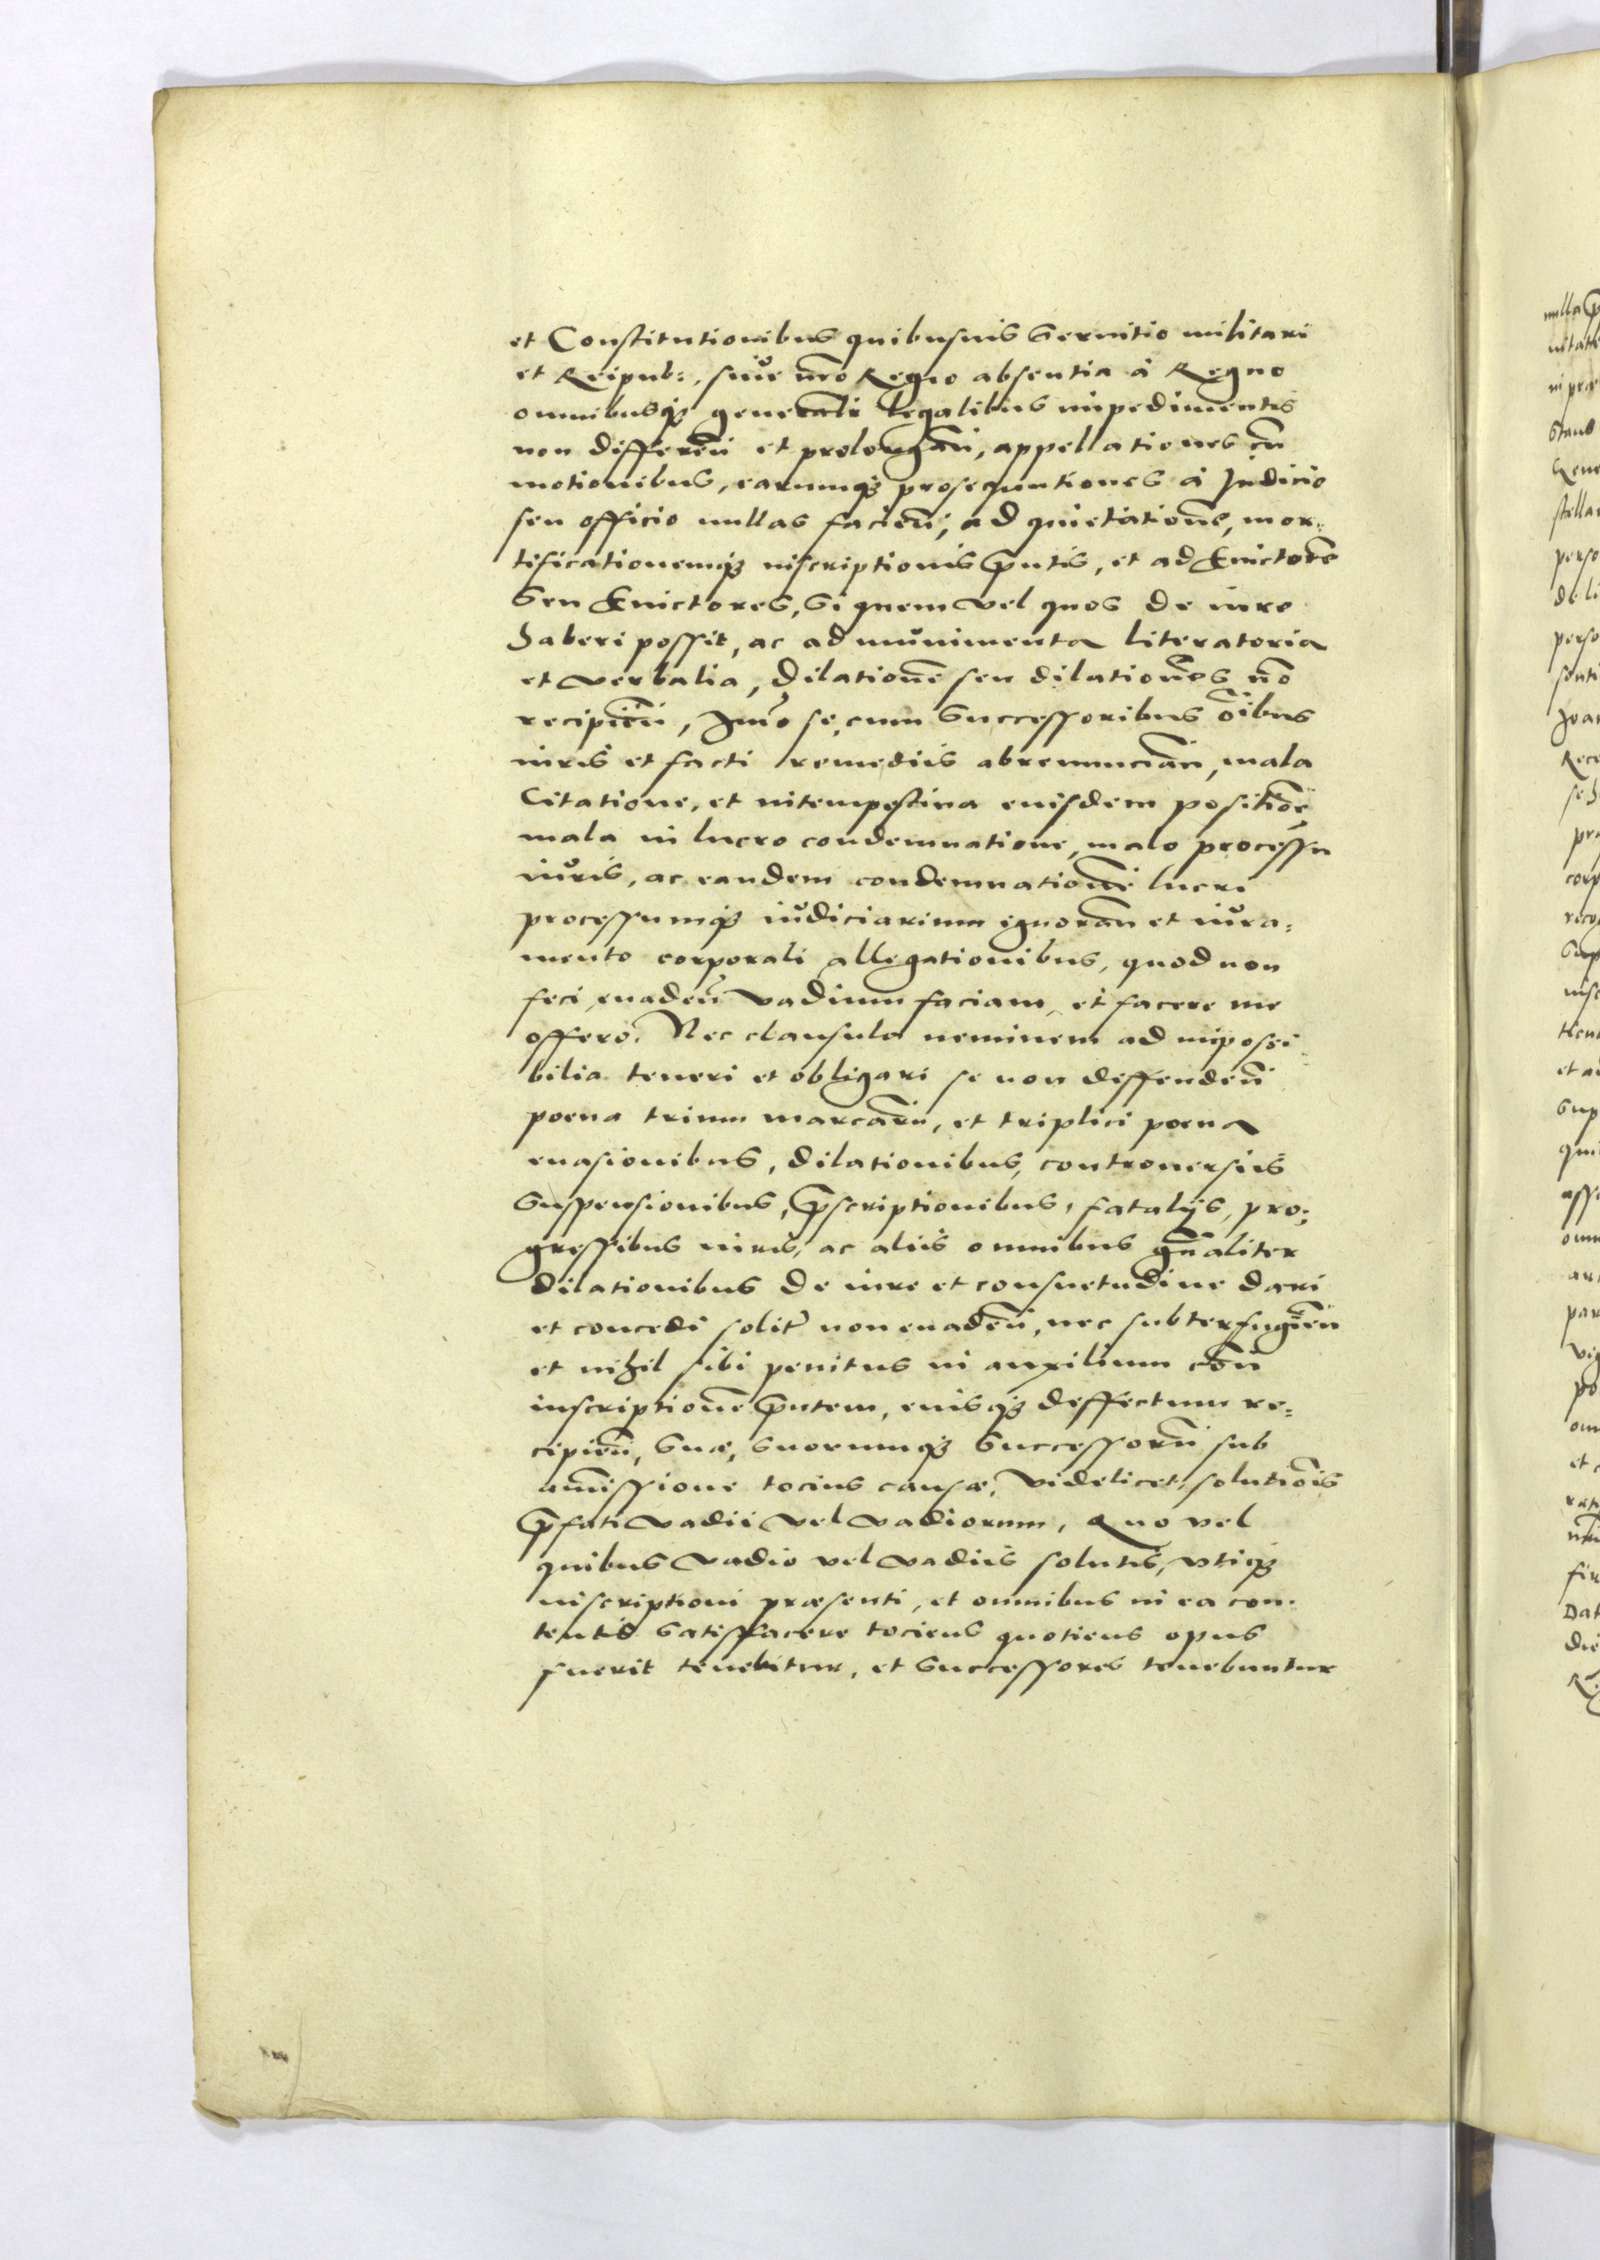 et Constitutionibus quibusuis seruitio militari
et Reipub:, siue nr̃o Regio absentia à Regno
omnibusq₃ generali legalibus impedimentis
non differeñ et prolongañ, appellationes cũ
motionibus, earumq₃ prosequutiones à Judicio
seu officio nullas facieñ, ad quietationẽ, mor:
tificationemq₃ inscriptionis p̃ntis, et ad Euictorẽ
seu Euictores, si quem vel quos de iure
haberi possit, ac ad munimenta literatoria
et verbalia, dilationẽ seu dilationes nõ
recipieñ, Imo se, cum successoribus oĩbus
iuris et facti remediis abrenunciañ, mala
Citatione, et intempestiua euisdem positiõe
mala in lucro condemnatione, malo processu
iuris, ac eandem condemnationẽ lucri
processumq₃ iudiciarium ignorañ et iura:
mento corporali allegationibus, quod non
feci euadeñ vadium faciam, et facere me
offero. Nec clausula neminem ad imposi
bilia teneri et obligari se non deffendeñ
poena trium marcarũ, et triplici poena
euasionibus, dilationibus, controuersiis
suspensionibus, p̃scriptionibus, fatalijs, pro:
gressibus iuris, ac aliis omnibus gñaliter
dilationibus de iure et consuetudine dari
et concedi solit̃ non euadeñ, nec subterfugieñ
et nihil sibi penitus in auxilium coñ
inscriptionẽ p̃ntem, euisq₃ deffectum re:
cipieñ, suæ, suorumq₃ successorũ sub
amissione tocius causæ, videlicet, solutiõis
p̃fati vadii vel vadiorum, Quo vel
quibus vadio vel vadiis solutis, vtiq₃
inscriptioni præsenti, et omnibus in ea con
tentis satisfacere tociens quotiens opus
fuerit tenebitur, et successores tenebuntur